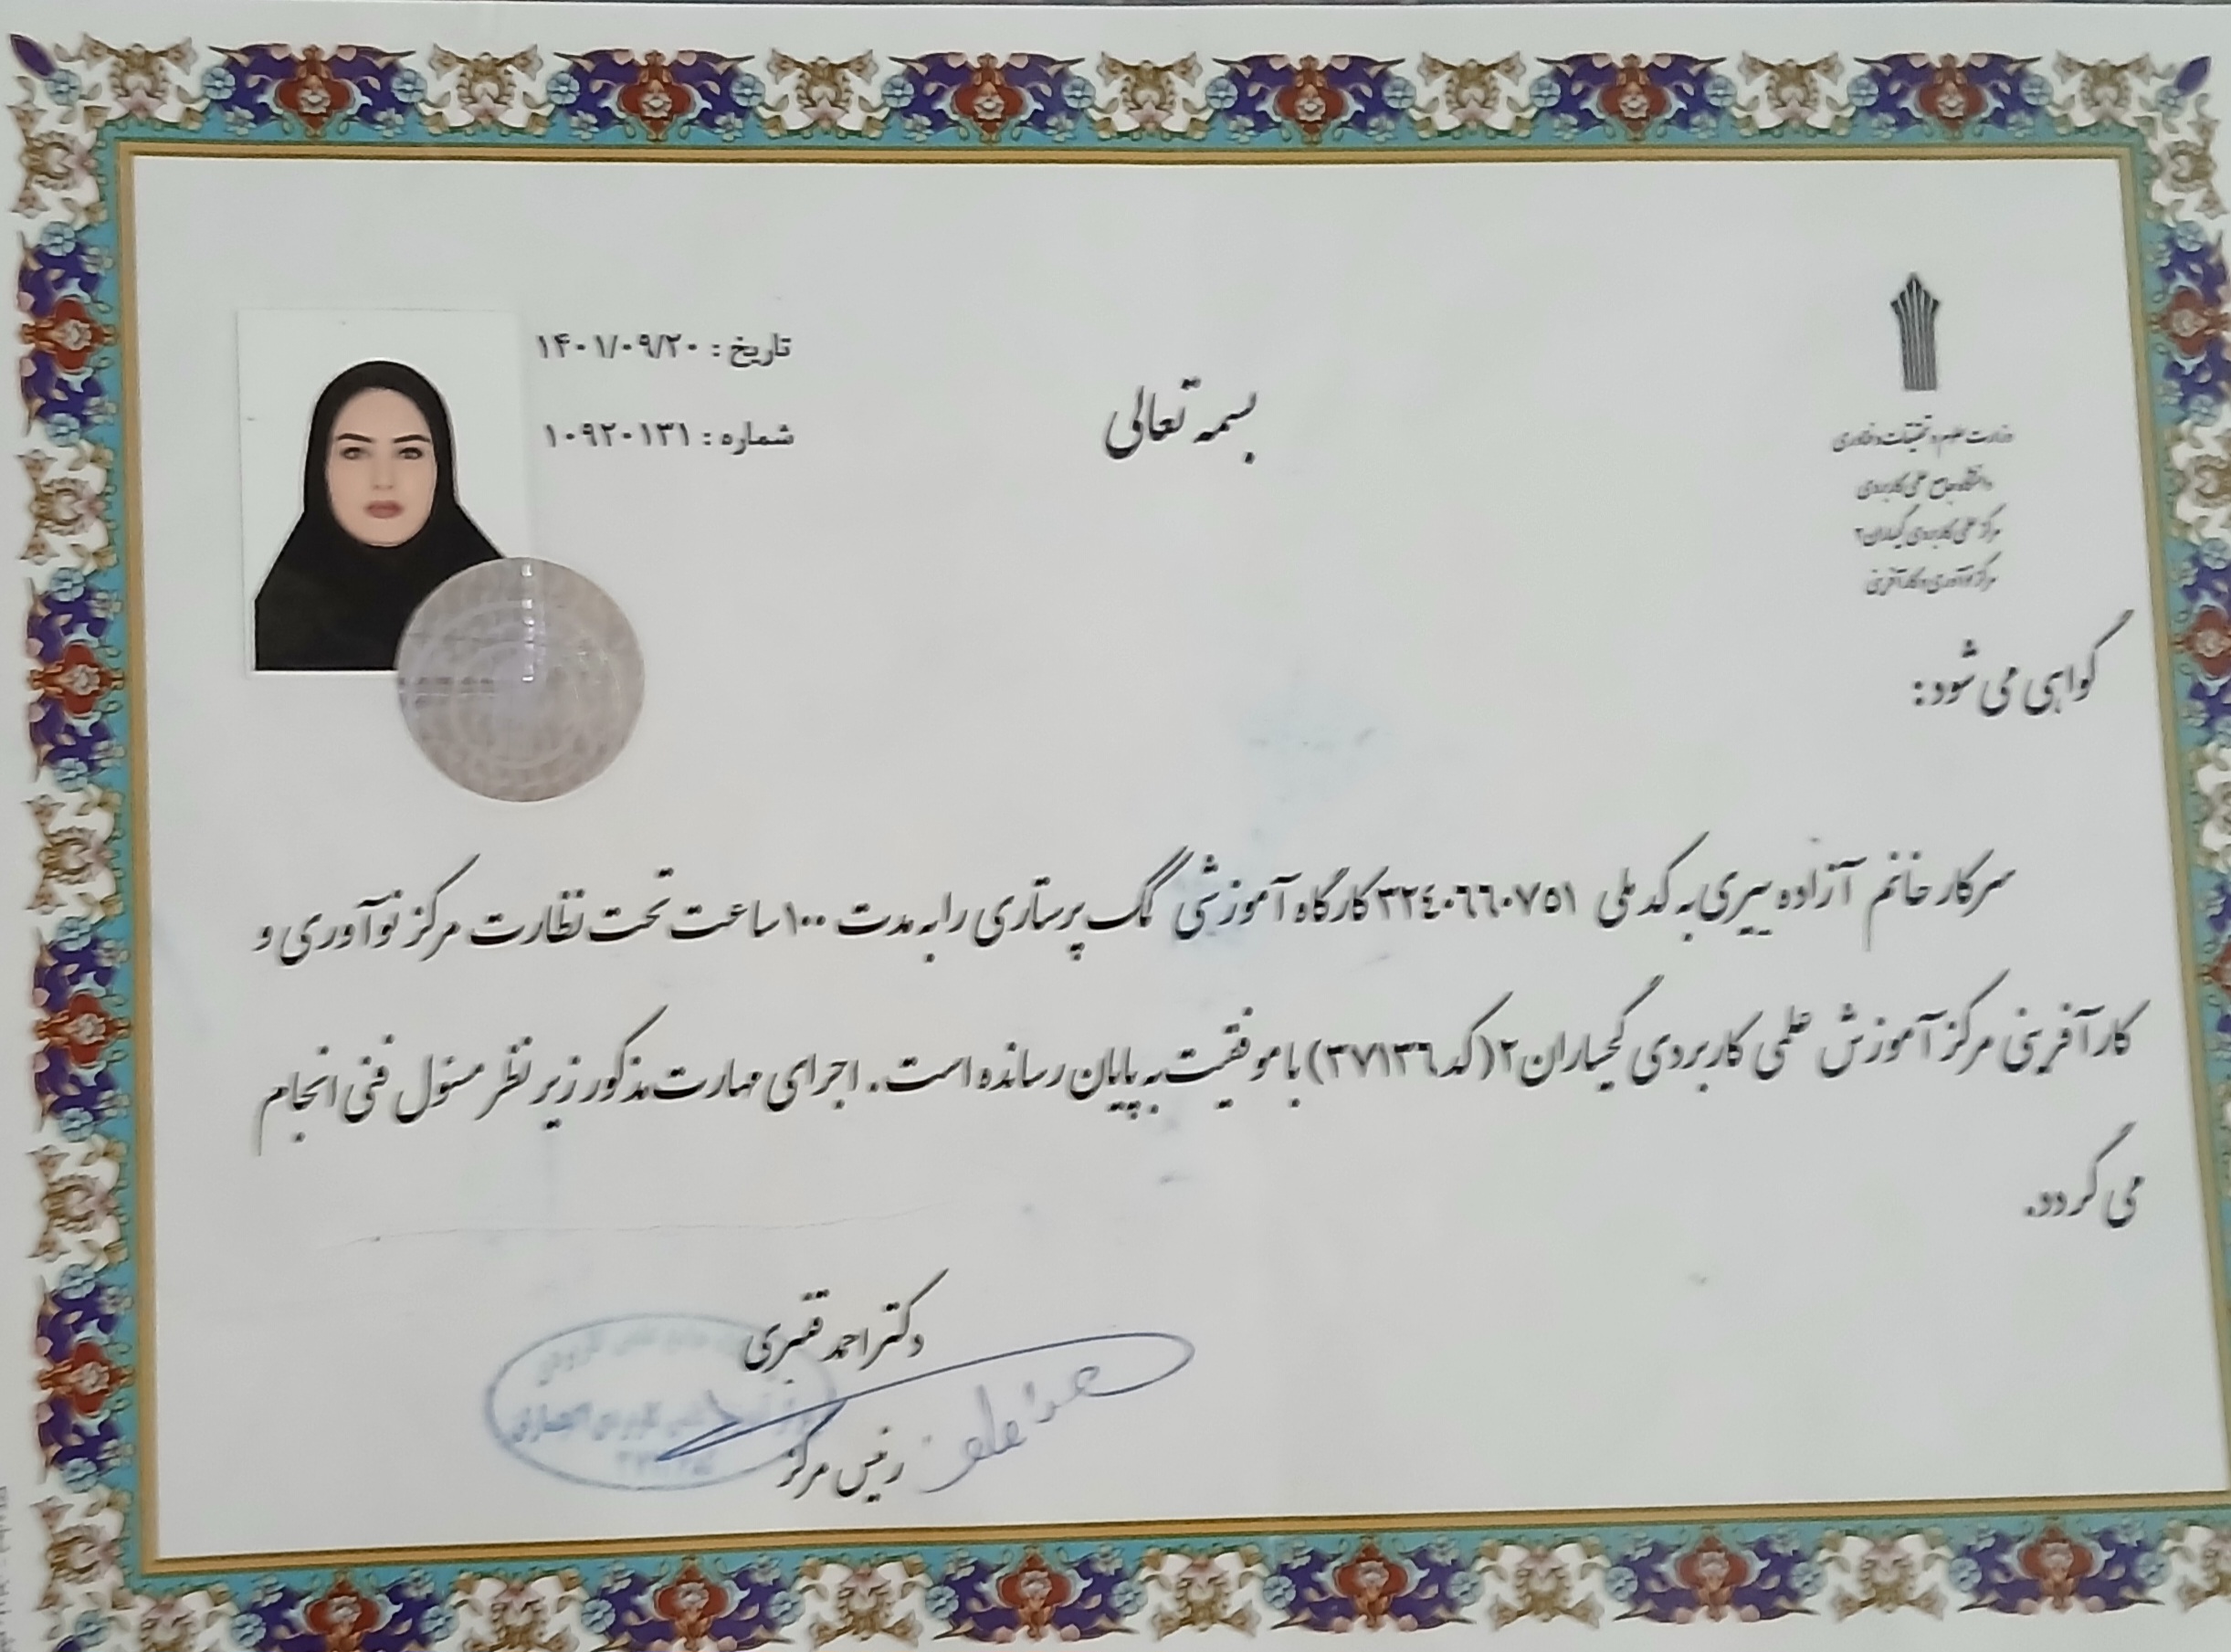 بسمه تعالی
تاریخ : ۱۴۰۱/۰۹/۲۰
شماره : ۱۰۹۲۰۱۳۱
وزارت علوم و تحقیقات و فناوری
دانشگاه جامع علمی کاربردی
مرکز علمی کاربردی گچساران ۲
مرکز نوآوری و کارآفرینی
گواهی می شود:
سرکار خانم آزاده پیری به کد ملی ۳۲٤۰٦٦۰۷٥۱ کارگاه آموزشی کمک پرستاری را به مدت ۱۰۰ ساعت تحت نظارت مرکز نوآوری و
کارآفرینی مرکز آموزش علمی کاربردی گچساران ۲ (کد ۳۷۱۳٦) با موفقیت به پایان رسانده است. اجرای مهارت مذکور زیر نظر مسئول فنی انجام
می گردد.
دکتر احمد قنبری
رئیس مرکز